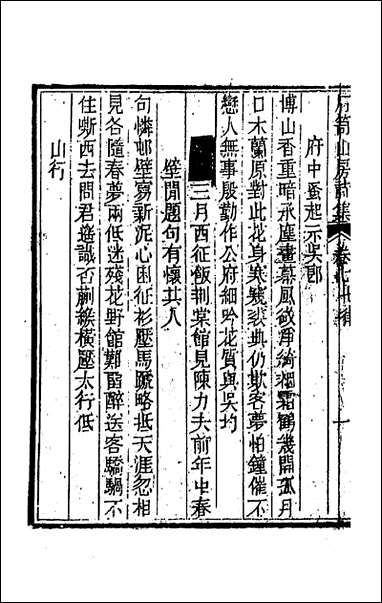 府中蚤起示吳郎
博山香重暗承塵畫幕風欲淨綺烟霜鶴幾開孤月
口木蘭原對此花身裘裝典仍欺客夢怕鐘催不
戀人無事殷勤作公府細吟花質與吳均
三月西征飯荆棠館見陳力夫前年中春
壁間題句有懷其人
句憐邨壁寫新泥心困征衫壓馬蹏略抵天涯忽相
見各隨春夢兩低迷殘花野館難留醉送客驕騧不
住嘶西去問君邊識否蒯緱橫壓太行低
山行